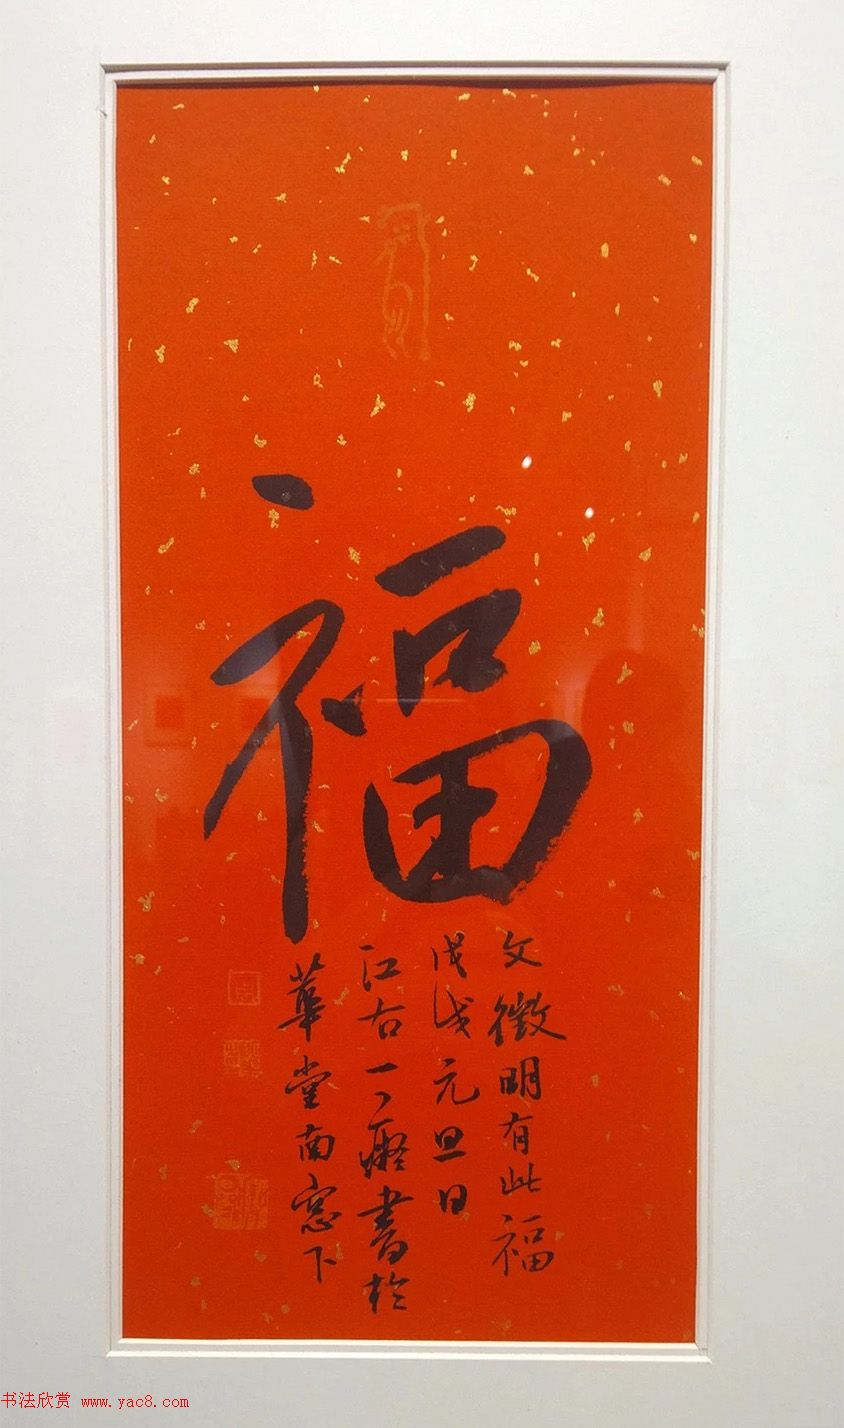 福
文徵明有此福
戊戌元旦日
江古一了癡書於
華堂南窓下
书法欣赏 www.yac8.com